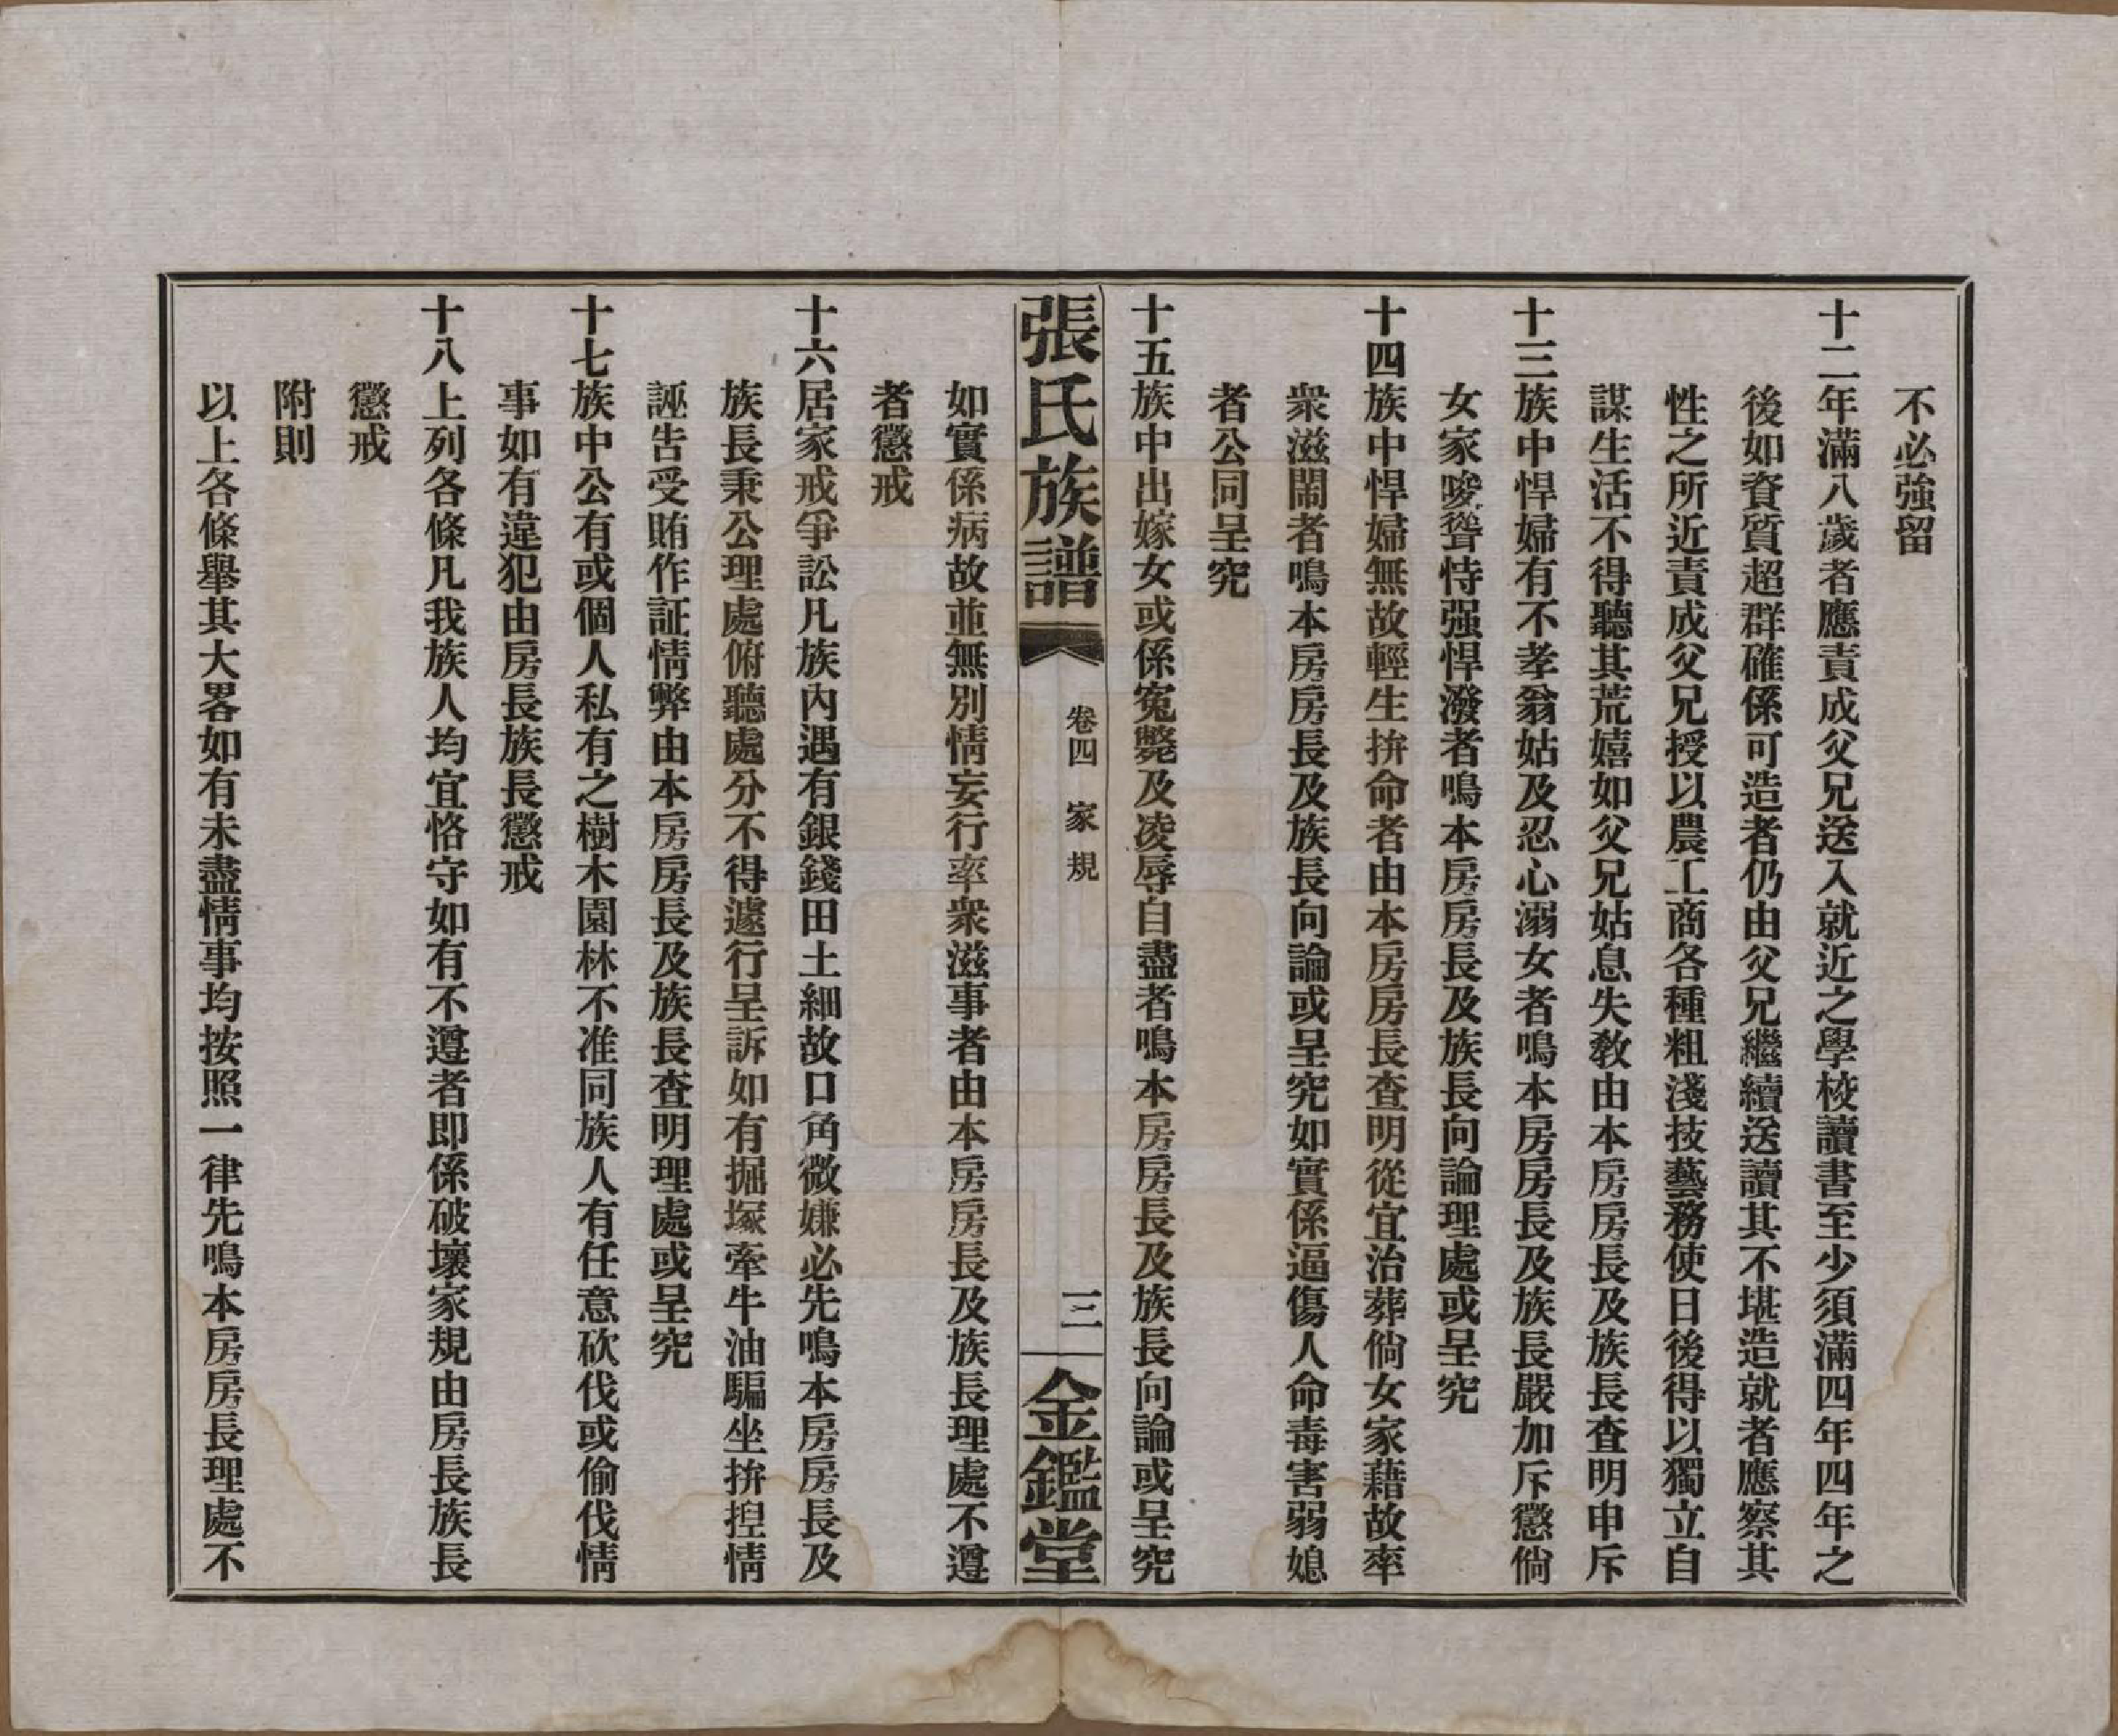 不必強留
十二年滿八歲者應責成父兄送入就近之學校讀書至少須滿四年四年之
後如資質超群確係可造者仍由父兄繼續送讀其不堪造就者應察其
性之所近責成父兄授以農工商各種粗淺技藝務使日後得以獨立自
謀生活不得聽其荒嬉如父兄姑息失敎由本房房長及族長查明申斥
十三族中悍婦有不孝翁姑及忍心溺女者鳴本房房長及族長嚴加斥懲倘
女家唆聳恃强悍潑者鳴本房房長及族長向論理處或呈究
十四族中悍婦無故輕生拚命者由本房房長查明從宜治葬倘女家藉故率
衆滋鬧者鳴本房房長及族長向論或呈究如實係逼傷人命毒害弱媳
者公同呈究
十五族中出嫁女或係寃斃及凌辱自盡者鳴本房房長及族長向論或呈究
張氏族譜
卷四 家規
三
金鑑堂
如實係病故並無別情妄行率衆滋事者由本房房長及族長理處不遵
者懲戒
十六居家戒爭訟凡族內遇有銀錢田土細故口角微嫌必先鳴本房房長及
族長秉公理處俯聽處分不得遽行呈訴如有掘塚牽牛油騙坐拚揑情
誣告受賄作証情弊由本房房長及族長查明理處或呈究
十七族中公有或個人私有之樹木園林不准同族人有任意砍伐或偷伐情
事如有違犯由房長族長懲戒
十八上列各條凡我族人均宜恪守如有不遵者即係破壞家規由房長族長
懲戒
附則
以上各條舉其大畧如有未盡情事均按照一律先鳴本房房長理處不